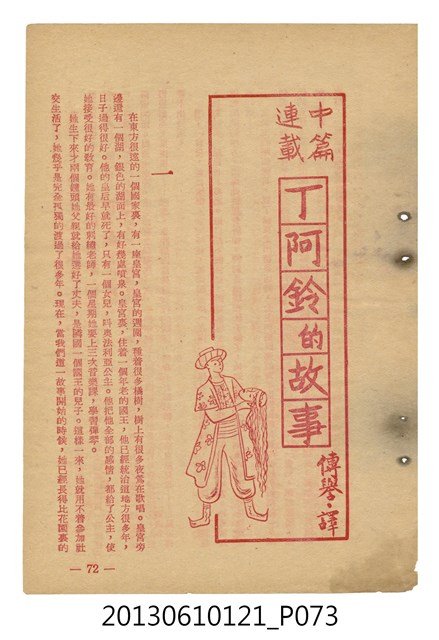 中篇
連載
丁阿鈴的故事
傅譽·譯
一
在東方很遠的一個國家裏，有一座皇宮，皇宮的週圍，種着很多橘樹，樹上有很多夜鶯在歌唱。皇宮旁
邊還有一個湖，銀色的湖面上，有好幾處噴泉。皇宮裏，住着一個年老的國王，他已經統治這地方很多年，
日子過得很好。他的皇后早就死了，只有一個女兒，叫奧法利亞公主。他把他全部的感情，都給了公主，使
她接受很好的敎育。她有最好的刺繡老師，一個星期她要上三次音樂課，學習彈琴。
她生下來才兩個鐘頭她父親就給她選好了丈夫，是鄰國一個國王的兒子。這樣一來，她就用不着參加社
交生活了，她幾乎是完全孤獨的渡過了很多年。現在，當我們這一故事開始的時候，她已經長得比花園裏的
— 72 —
20130610121_P073